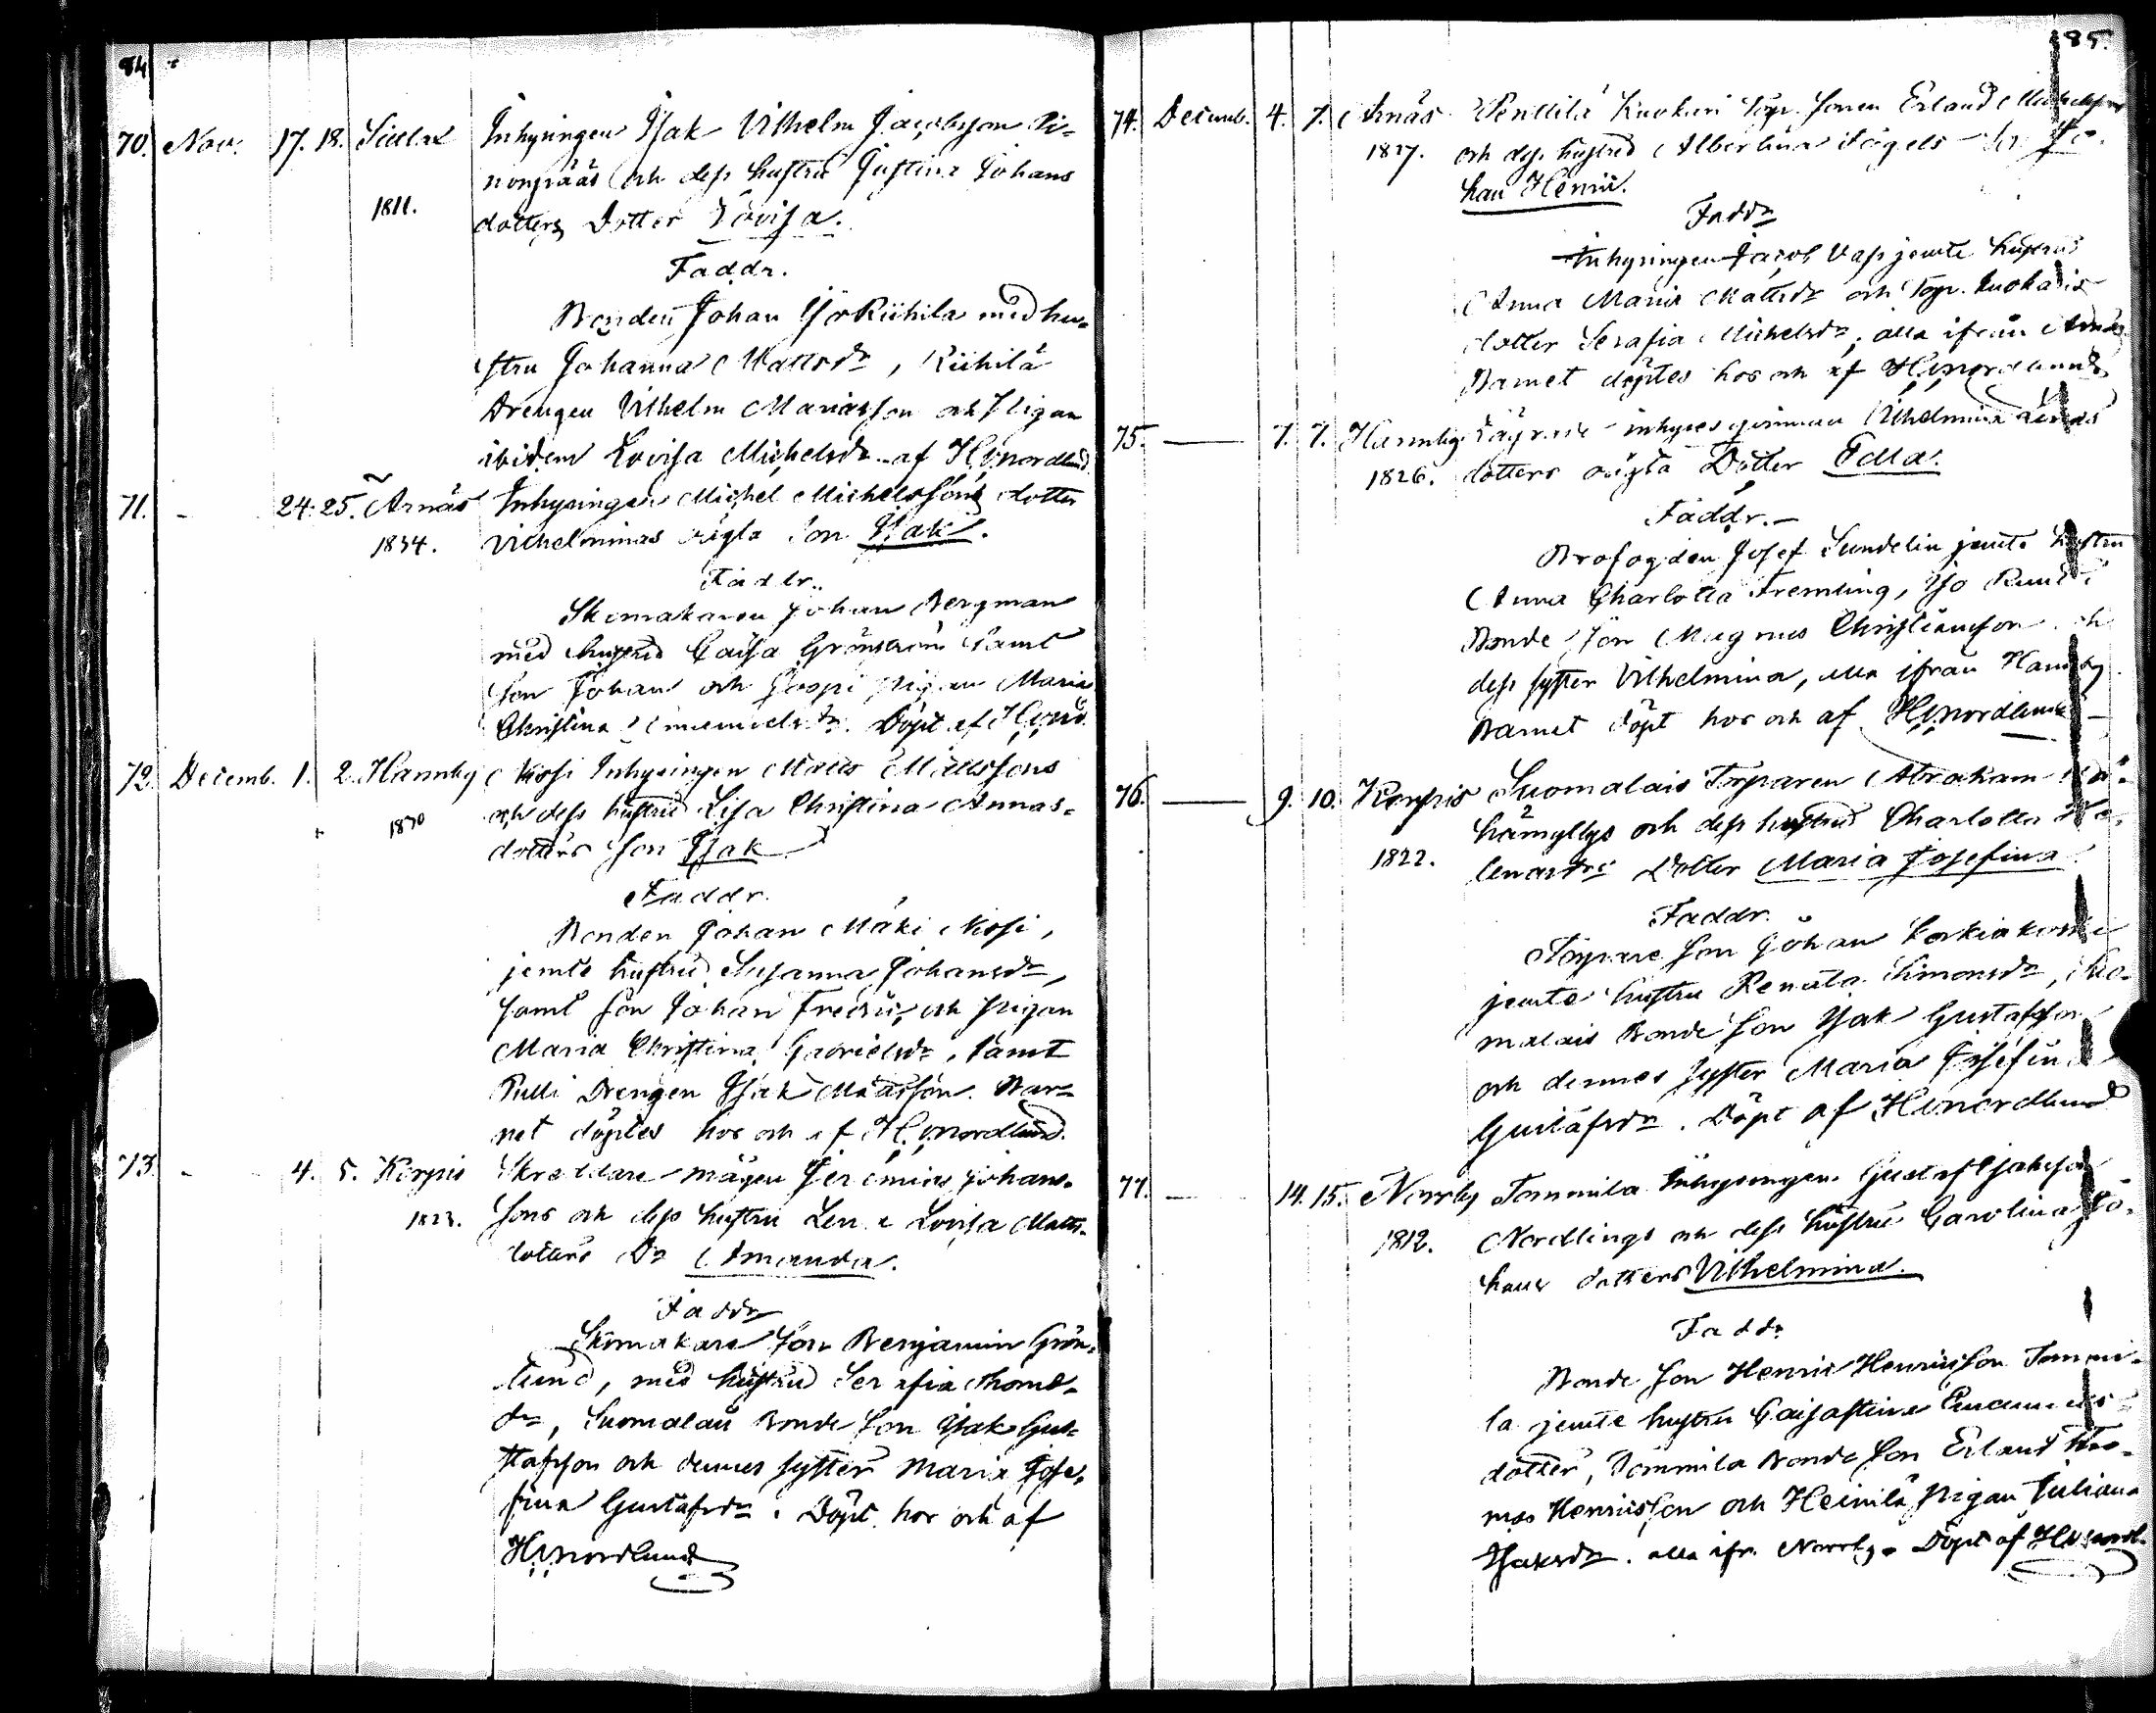 84
70. Nov. 17. 18. Sidlax Inhysingen Isak Vilhelm Jacobsson
och dess hustru Justina Johans
1811.
dotters Dotter Lovisa.
Faddr.
Bonden Johan Yrkiihila med hu-
stru Johanna Mattsdr, Riihilä
Drengen Vilhelm Mariasson och Pigan
ibidem Lovisa Michelsdr af HVnordlund
71. - 24. 25. Arnäs Inhysingen Michel Michelssons dotter
1834. Vilhelminas oägta Son Isak.
Faddr.
Skomakaren Johan Bergman
med hustru Caisa Grönström samt
Son Johan och pigan Maria
Christina Emanuelsdr. Döpt af HVnd.
72. Decemb. 1. 2. Hannby Nissi Inhysingen Matts Mattssons
1830 och dess hustru Lisa Christina Annas-
dotters Son Isak
Faddr.
Bonden Johan Mäki Nissi,
jemte hustru Susanna Johansdr,
samt Son Johan Fredric, och pigan
Maria Christina Gabrielsdr, samt
Pulli Drengen Isak Mattsson. Bar-
net döptes hos och af HVnordlund.
73. - 4. 5. Korpis Skreddare-mågen Jeremias Johans-
1823. Sons och dess hustru Lena Lovisa Matts-
dotters Dr Amanda.
Faddr
Skomakare Son Benjamin Grön-
lund, med hustru Serafia Thoms-
dr, Suomalais Bonde Son Isak Gus-
tafsson och dennes syster Maria Jose-
fina Gustafsdr. Döpt hos och af
HVnordlund
85.
74. Decemb. 4. 7. Arnäs Penttilä Kuokari Torp. Sonen Erland Michelsson
1827. och dess hustru Albertina Fågels Son Jo-
han Henric.
Faddr
Inhysingen Jacob Vass jemte hustru
Anna Maria Mattsdr och Torp. Kuokaris
dotter Serafia Michelsdr, alla ifrån Arnäs
Barnet döptes hos och af HVnordlund
75. 7. 7. Hannby inhyses qvinnan Vilhelmina
1826. dotters oägta Dotter Edla.
Faddr.-
Brofogden Josef Sundelin jemte hustru
Anna Charlotta Fremling,
Bonde Son Magnus Christiansson och
dess syster Vilhelmina, alla ifrån Hannby
Barnet döpt hos och af HVnordlund
76. 9. 10. Korpis Suomalais Torparen Abraham
hämyllys och dess hustru Charlotta He-
1822. lenasdrs Dotter Maria Josefina
Faddr.
Torpare Son Johan Korkiakoski
jemte hustru Renata Simonsdr, Suo-
malais Bonde Son Isak Gustafsson
och dennes syster Maria Josefina
Gustafsdr. Döpt af HVnordlund
77. 14. 15. Norrby Tommila Inhysingen Gustaf Isaksson
1812. Nordlings och dess hustru Carolina Jo-
hans dotters Vilhelmina.
Faddr
Bonde Son Henric Henricsson Tommi-
la jemte hustru Caisastina Emanuels
dotter, Tommila Bonde Son Erland Tho-
mas Henricsson och Heinilä pigan Juliana
Isaksdr. alla ifr. Norrby. Döpt af HVnordl.